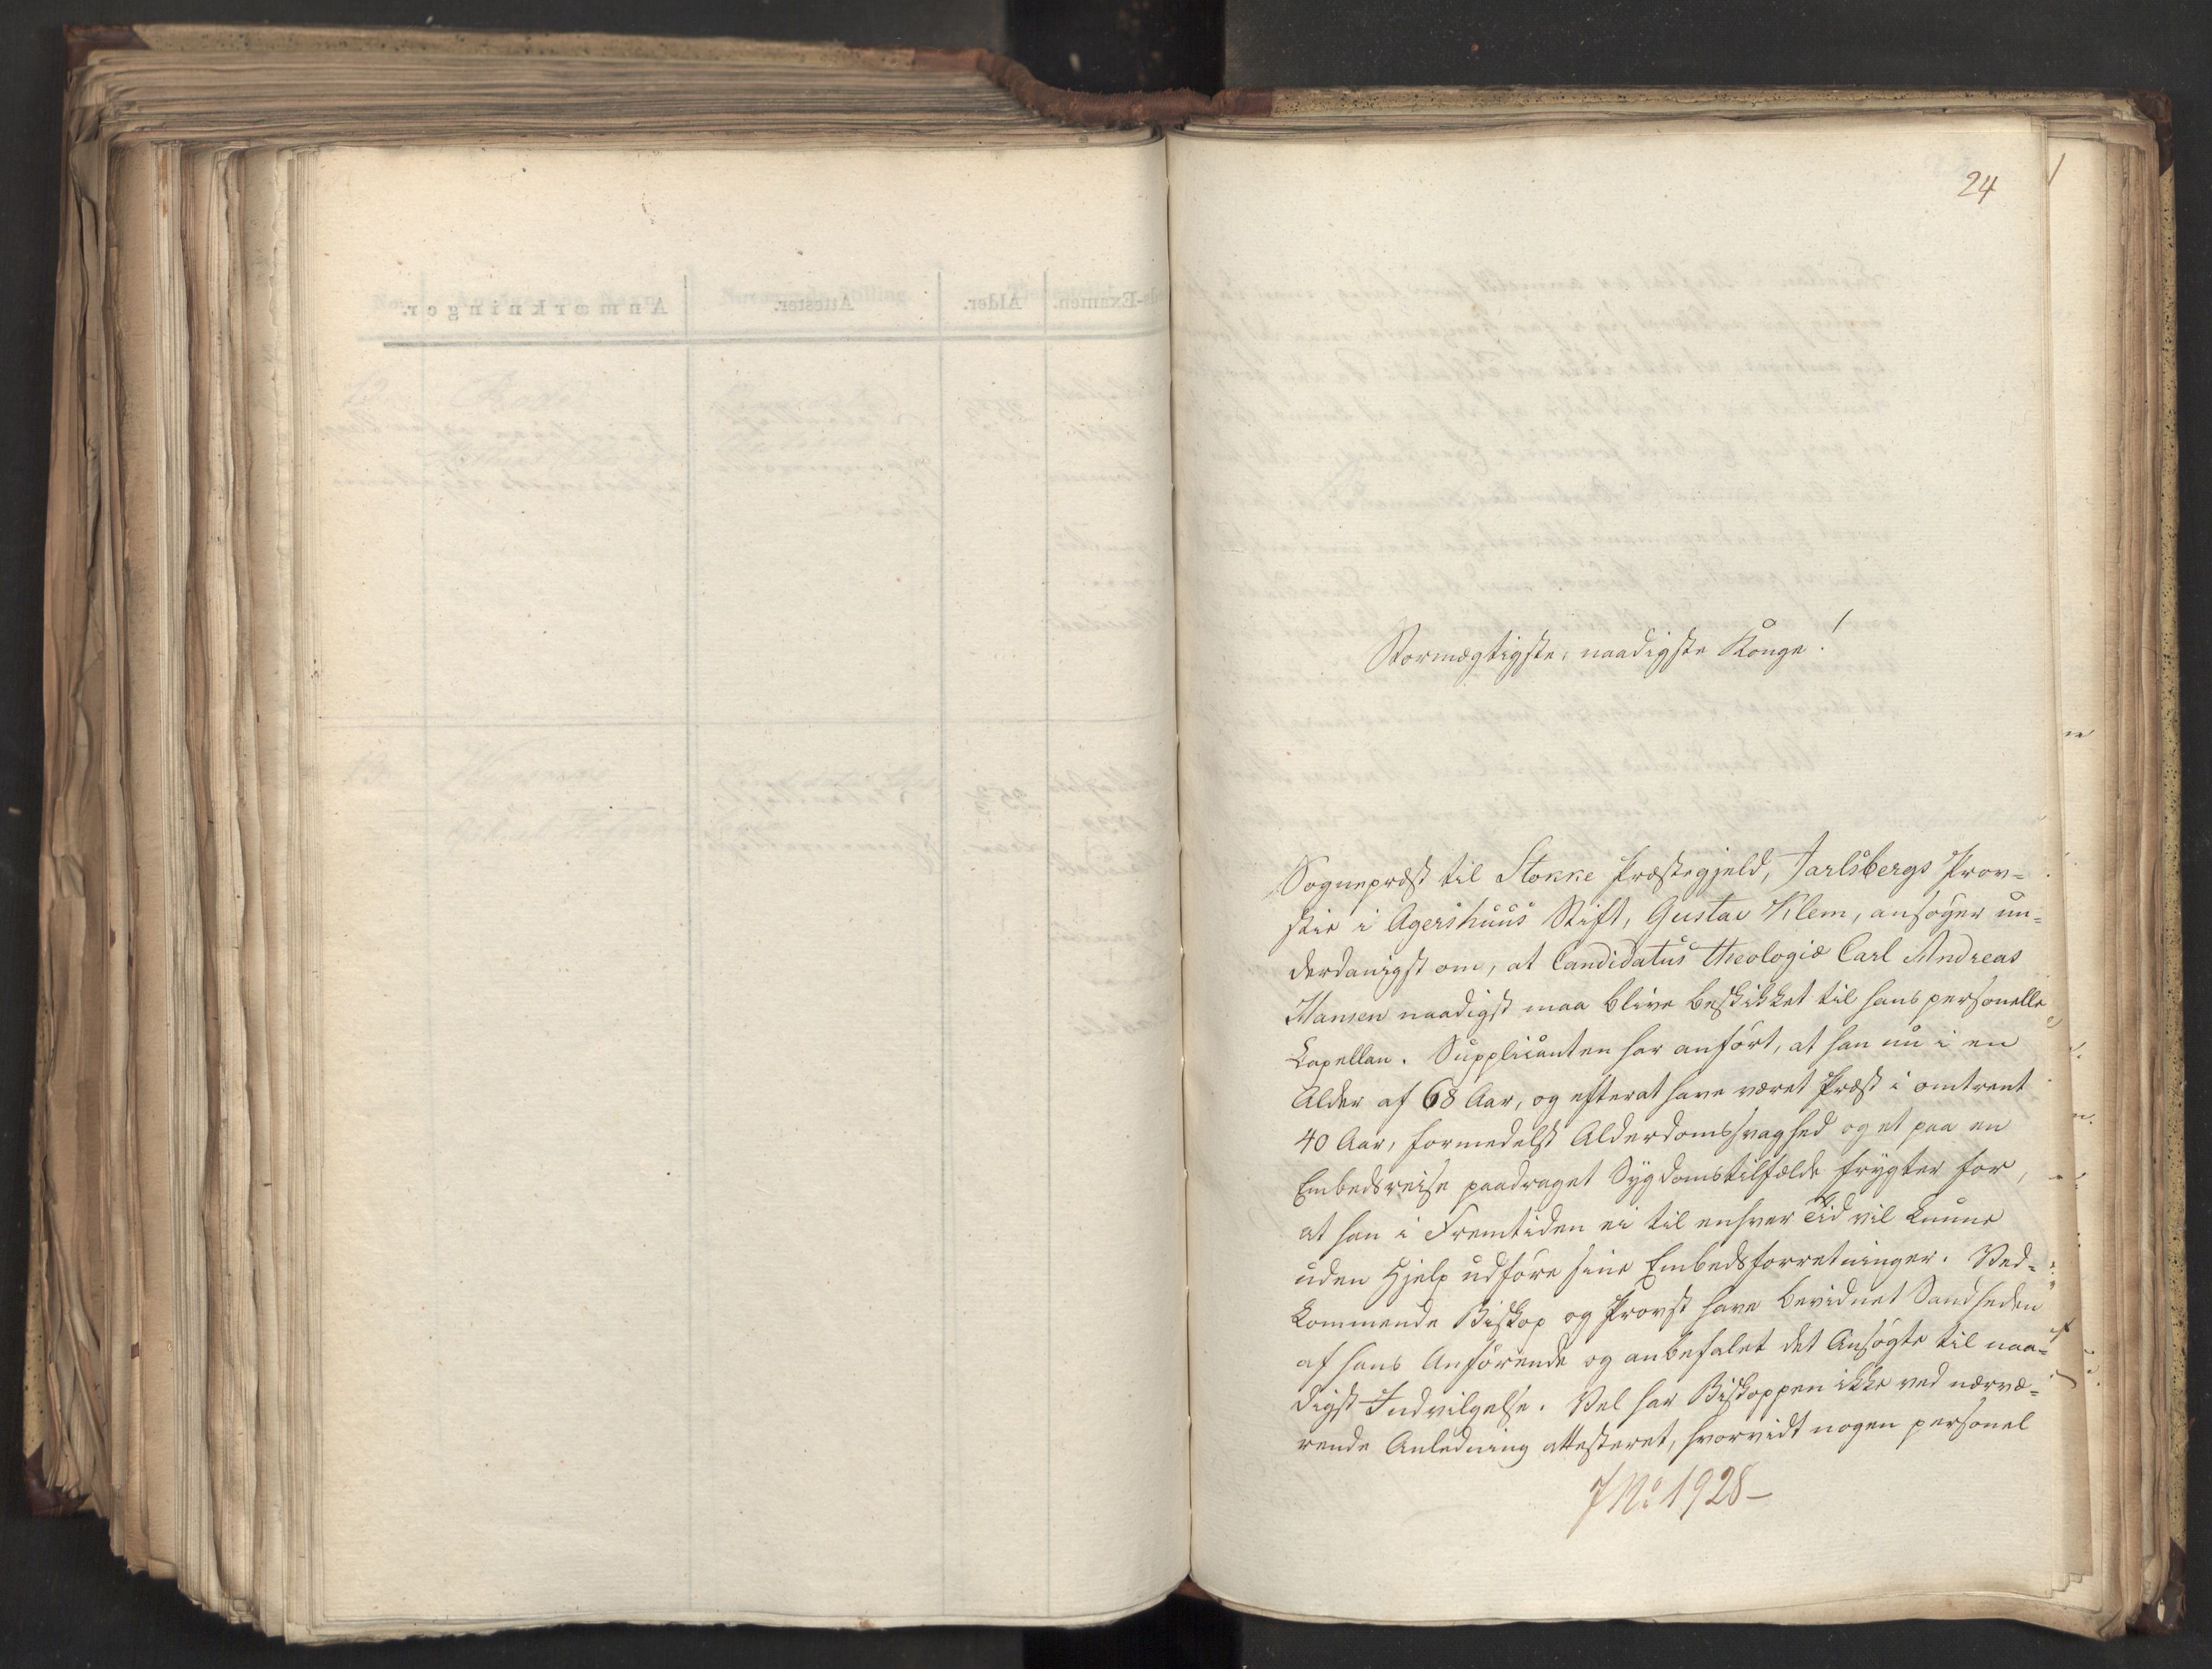 24
Stormægtigste, naadigste Konge!
Sognepræst til Stokke Præstegjeld, Jarlsbergs Prov=
stie i Agershuus Stift, Gustav Klem, ansøger un=
derdanigst om, at Candidatus theologiæ Carl Andreas
Hansen naadigst maa blive beskikket til hans personelle
Capellan. Supplicanten har anført, at han nu i en
Alder af 68 Aar, og efterat have været Præst i omtrent
40 Aar, formedelst Alderdomssvaghed og et paa en
Embedsreise paadraget Sygdomstilfælde frygter for,
at han i Fremtiden ei til enhver Tid vil kunne
uden Hjelp udføre sine Embedsforretninger. Ved=
kommende Biskop og Provst have bevidnet Sandheden
af hans Anførende og anbefalet det Ansøgte til naa=
digst Indvilgelse. Vel har Biskoppen ikke ved nærvæ=
rende Anledning attesteret, hvorvidt nogen personel
J No 1928-